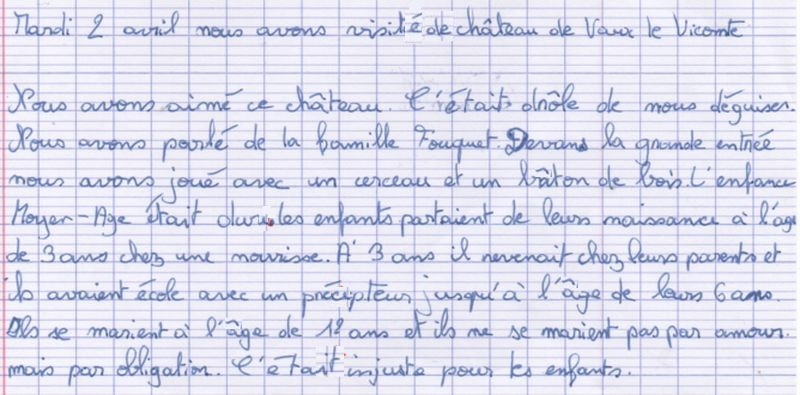 Mardi 2 avril nous avons visitié de château de Vaux le Vicomte
Nous avons aimé ce château. C'était drôle de nous déguiser.
Nous avons parlé de la famille Fouquet. Devant la grande entrée
nous avons joué avec un cerceau et un bâton de bois. L'enfance
Moyen-Age était dure. les enfants partaient de leur naissance à l'âge
de 3 ans chez une nourisse. A' 3 ans il revenait chez leurs parents et
ils avaient école avec un précipteur jusqu'à l'âge de leurs 6 ans.
Ils se marient à l'âge de 12 ans et ils ne se marient pas par amour.
mais par obligation. C'était injuste pour les enfants.